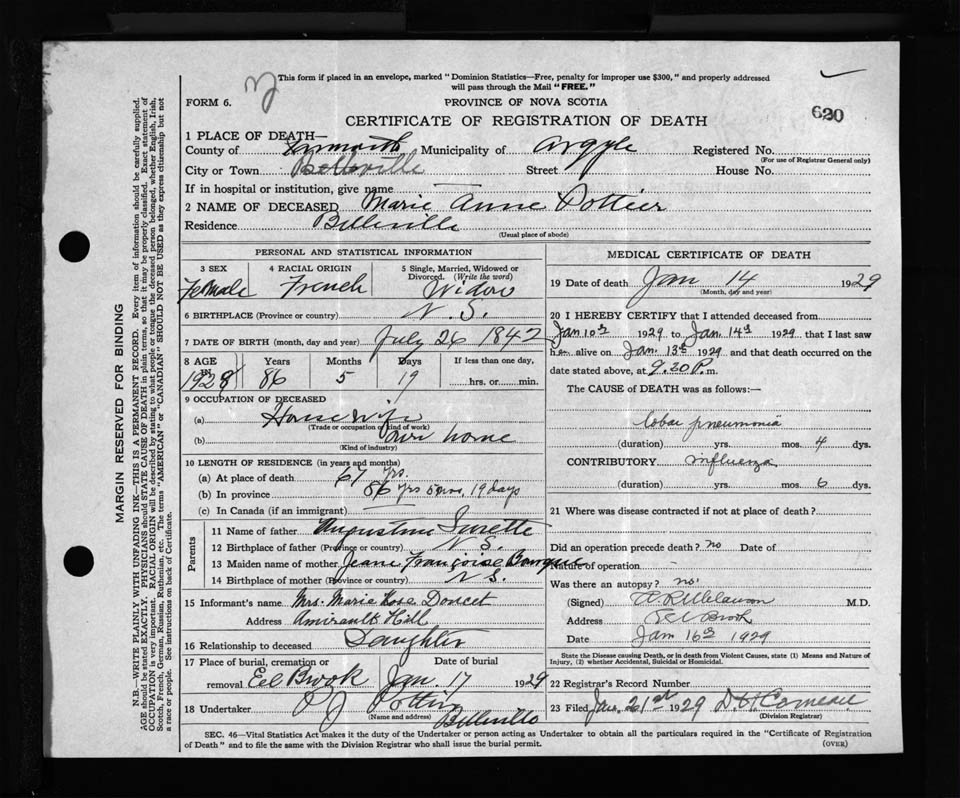 This form if placed in an envelope, marked "Dominion Statistics—Free, penalty for improper use $300," and properly addressed
will pass through the Mail "FREE."
FORM 6.
PROVINCE OF NOVA SCOTIA
CERTIFICATE OF REGISTRATION OF DEATH
620
1 PLACE OF DEATH—
County of Yarmouth Municipality of Argyle Registered No.
(For use of Registrar General only)
City or Town Belleville Street House No.
If in hospital or institution, give name
2 NAME OF DECEASED Marie Anne Pottier
Residence Belleville
(Usual place of abode)
PERSONAL AND STATISTICAL INFORMATION
3 SEX Female
4 RACIAL ORIGIN French
5 Single, Married, Widowed or Divorced. (Write the word) Widow
6 BIRTHPLACE (Province or country) N.S.
7 DATE OF BIRTH (month, day and year) July 26 1842
8 AGE IN 1928 Years 86 Months 5 Days 19 If less than one day, hrs. or min.
9 OCCUPATION OF DECEASED
(a) House wife
(Trade or occupation or kind of work)
(b) own home
(Kind of industry)
10 LENGTH OF RESIDENCE (in years and months)
(a) At place of death 67 yrs.
(b) In province 86 yrs 5 mos, 19 days
(c) In Canada (if an immigrant)
Parents
11 Name of father Augustine Surette
12 Birthplace of father (Province or country) N.S.
13 Maiden name of mother Jeane Françoise
14 Birthplace of mother (Province or country) N S.
15 Informant's name Mrs. Marie Rose Doucet
Address Amirault Hill
16 Relationship to deceased Daughter
17 Place of burial, cremation or removal Eel Brook
Date of burial Jan. 17 1929
18 Undertaker P J Pottier
(Name and address) Belleville
MEDICAL CERTIFICATE OF DEATH
19 Date of death Jan 14 1929
(Month, day and year)
20 I HEREBY CERTIFY that I attended deceased from
Jan 10th 1929 to Jan. 14th 1929 that I last saw
her alive on Jan. 13th 1929 and that death occurred on the
date stated above, at 9.20 P.m.
The CAUSE of DEATH was as follows:—
lobar pneumonia
(duration) yrs. mos. 4 dys.
CONTRIBUTORY influenza
(duration) yrs. mos. 6 dys.
21 Where was disease contracted if not at place of death?
Did an operation precede death? no Date of
Nature of operation
Was there an autopsy? no.
(Signed) M.D.
Address Brook
Date Jan 16th 1929
State the Disease causing Death, or in death from Violent Causes, state (1) Means and Nature of
Injury, (2) whether Accidental, Suicidal or Homicidal.
22 Registrar's Record Number
23 Filed Jan. 21st 1929 Comeau
(Division Registrar)
SEC. 46—Vital Statistics Act makes it the duty of the Undertaker or person acting as Undertaker to obtain all the particulars required in the "Certificate of Registration
of Death" and to file the same with the Division Registrar who shall issue the burial permit.
(OVER)
MARGIN RESERVED FOR BINDING
N.B.—WRITE PLAINLY WITH UNFADING INK—THIS IS A PERMANENT RECORD. Every item of information should be carefully supplied.
AGE should be stated EXACTLY. PHYSICIANS should STATE CAUSE OF DEATH in plain terms, so that it may be properly classified. Exact statement of
OCCUPATION is very important. RACIAL ORIGIN will be described by stating to what people or tongue the deceased person belonged, whether English, Irish,
Scotch, French, German, Russian, Ruthenian, etc. The terms "AMERICAN" or "CANADIAN" SHOULD NOT BE USED as they express citizenship but not
a race or people. See instructions on back of Certificate.